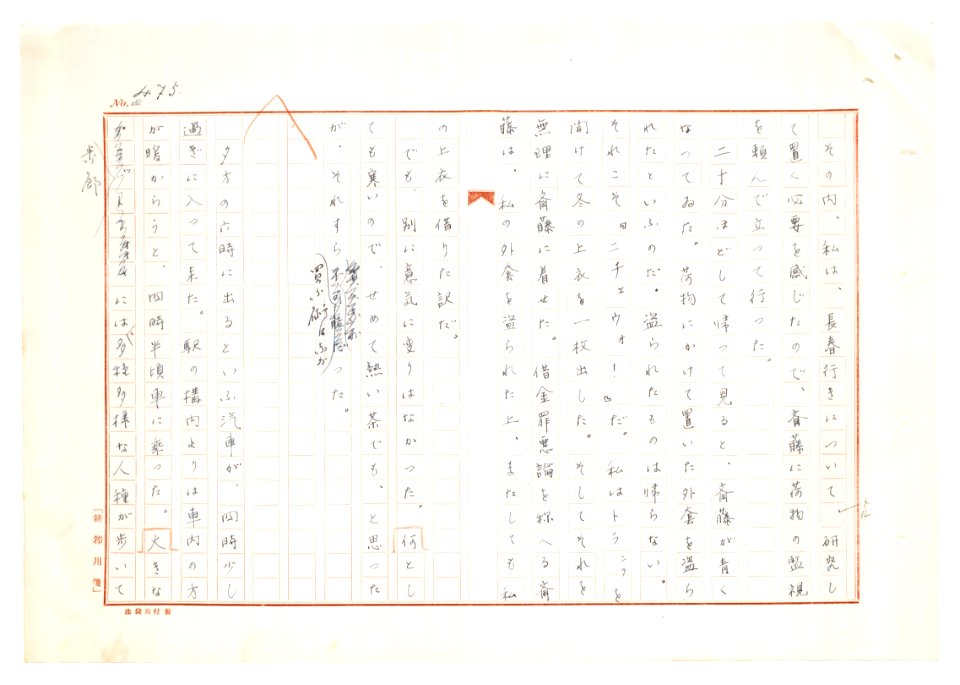 No. 475.
その内、私は、長春行きについて研究し
て置く必要を感じたので、斉藤に荷物の監視
を頼んで立つて行つた。
二十分ほどして帰つて見ると、斉藤が青く
なつてゐた。荷物にかけて置いた外套を盗ら
れたといふのだ。盗られたものは帰らない。
それこそ ニチェウオー! だ。私はトランクを
開けて冬の上衣を一枚出した。そしてそれを
無理に斉藤に着せた。借金罪悪論を称へる斉
藤は、私の外套を盗られた上、またしても私
の上衣を借りた訳だ。
でも、別に意気に変りはなかつた。何とし
ても寒いので、せめて熱い茶でも、と思つた
が、それすら不可能だつた。
買ふ所はなか
夕方の六時に出るといふ汽車が、四時少し
過ぎに入つて来た。駅の構内よりは車内の方
が暖からうと、四時半頃車に乗つた。大きな
には多種多様な人種が歩いて
歩廊
「新物川箋」
池袋 村製